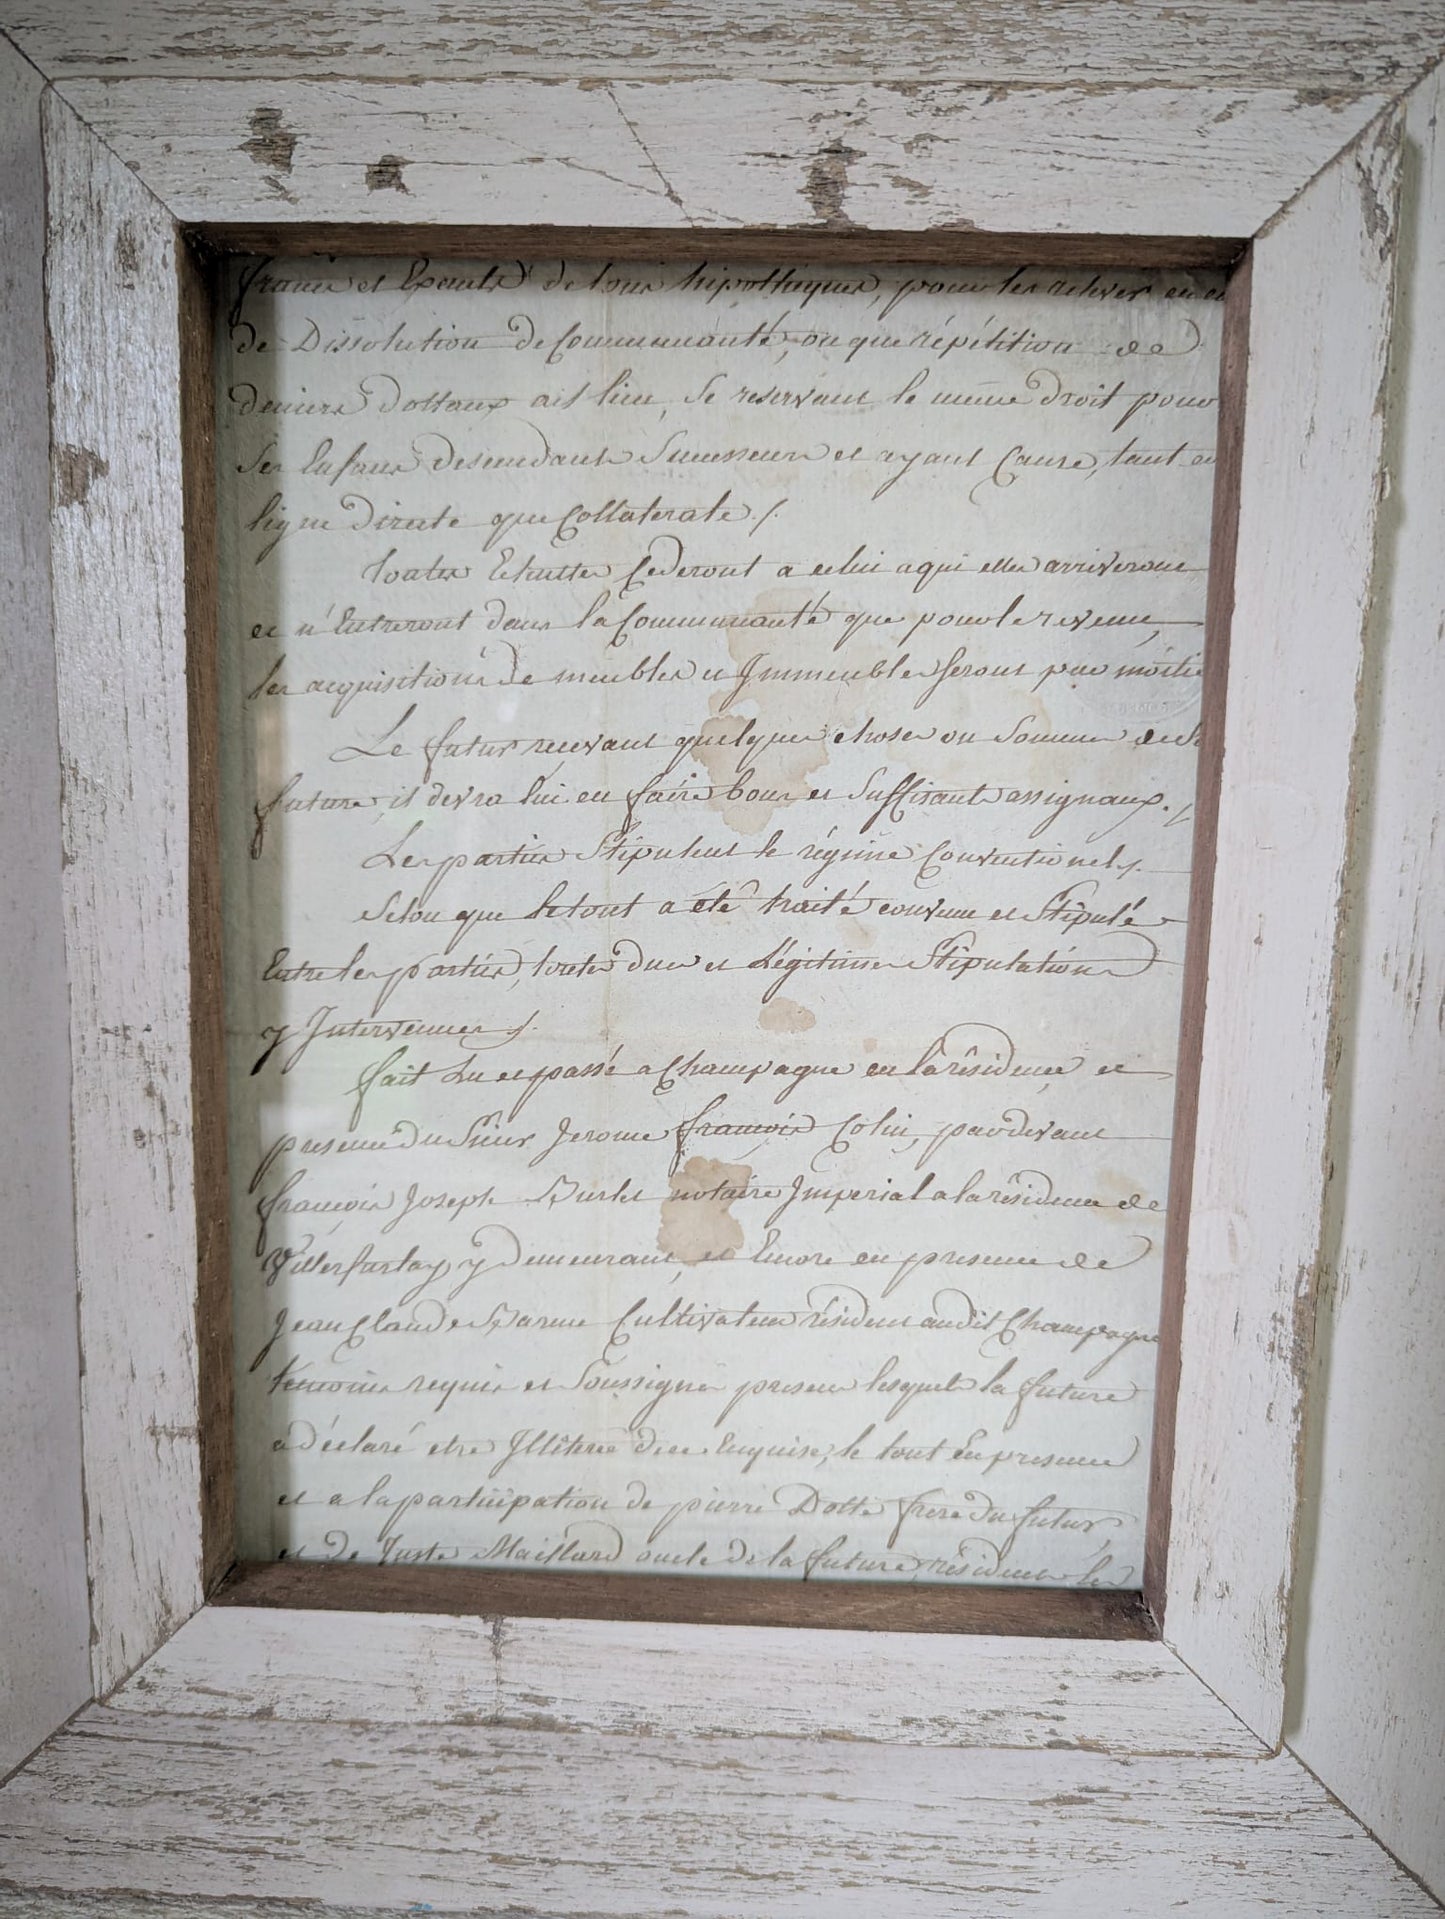 francs et Exempts de tous hipothéques, pour les relever en
de Dissolution de Communauté, ou que répétition de
deniers Dottaux ait lieu, Se reservant le même Droit pour
Ses Enfans descendants Successeurs et ayant Cause, tant en
ligne Directe que Collaterale ./.
Toutes Echuttes Cederont a celui a qui elles arriveront
et n'Entreront dans la Communauté que pour le revenu,
les acquisitions de meubles et Immeubles seront par moitié
Le futur recevant quelques choses ou Sommes de la
future, il devra lui en faire bons et Suffisants assignaux ./
Les parties Stipulent le régime Conventionel ./.
Selon que le tout a été traité convenu et Stipulé
Entre les parties, toutes dues et Légitimes Stipulations
y Intervenues ./.
fait Lu et passé a Champagne en la résidence et
presence du Sieur Jerome françois Colin, pardevant
françois Joseph notaire Imperial a la résidence de
Villersfarlay y demeurant, et Encore en presence de
Jean Claude Cultivateur résident audit Champagne
temoins requis et Soussignés presens lesquels la future
a déclaré etre Illiterée Enquise, le tout En presence
et a la participation de pierre Dotte frere du futur,
et de Juste Maillard oncle de la future, résidents les